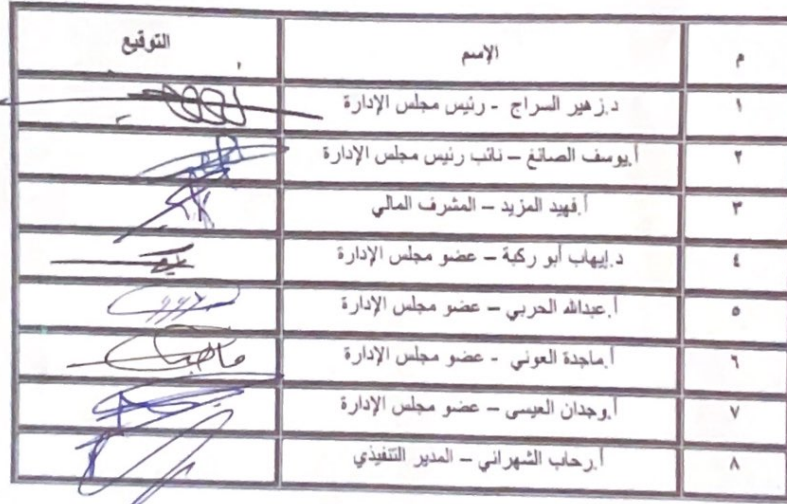 م الإسم التوقيع
١ د.زهير السراج - رئيس مجلس الإدارة
٢ أ.يوسف الصائغ – نائب رئيس مجلس الإدارة
٣ أ.فهيد المزيد – المشرف المالي
٤ د.إيهاب أبو ركبة – عضو مجلس الإدارة
٥ أ.عبدالله الحربي – عضو مجلس الإدارة
٦ أ.ماجدة العوني - عضو مجلس الإدارة
٧ أ.وجدان العيسى – عضو مجلس الإدارة
٨ أ.رحاب الشهراني – المدير التنفيذي